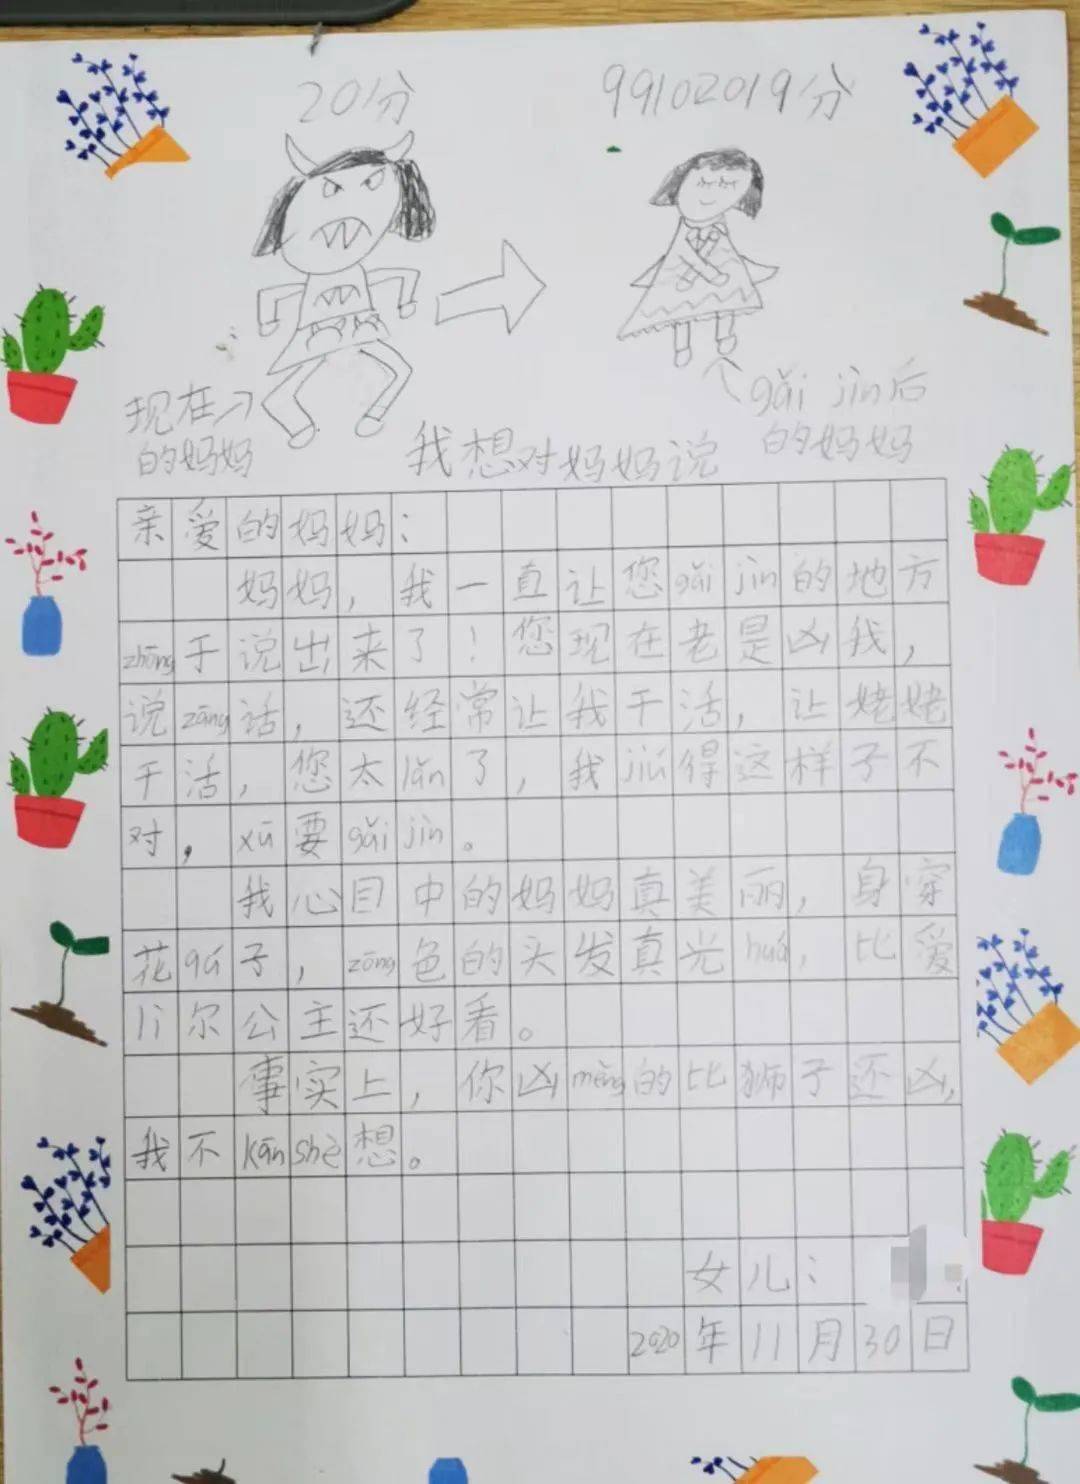 20分
99102019分
现在
的妈妈
gǎi jìn后
的妈妈
我想对妈妈说
亲爱的妈妈：
妈妈，我一直让您gǎi jìn的地方
zhōng于说出来了！您现在老是凶我，
说zāng话，还经常让我干活，让姥姥
干活，您太lǎn了，我jiú得这样子不
对，xū要gǎi jìn。
我心目中的妈妈真美丽，身穿
花qú子，zōng色的头发真光huá，比爱
lì尔公主还好看。
事实上，你凶měng的比狮子还凶，
我不kān shè想。
女儿：
2020年11月30日